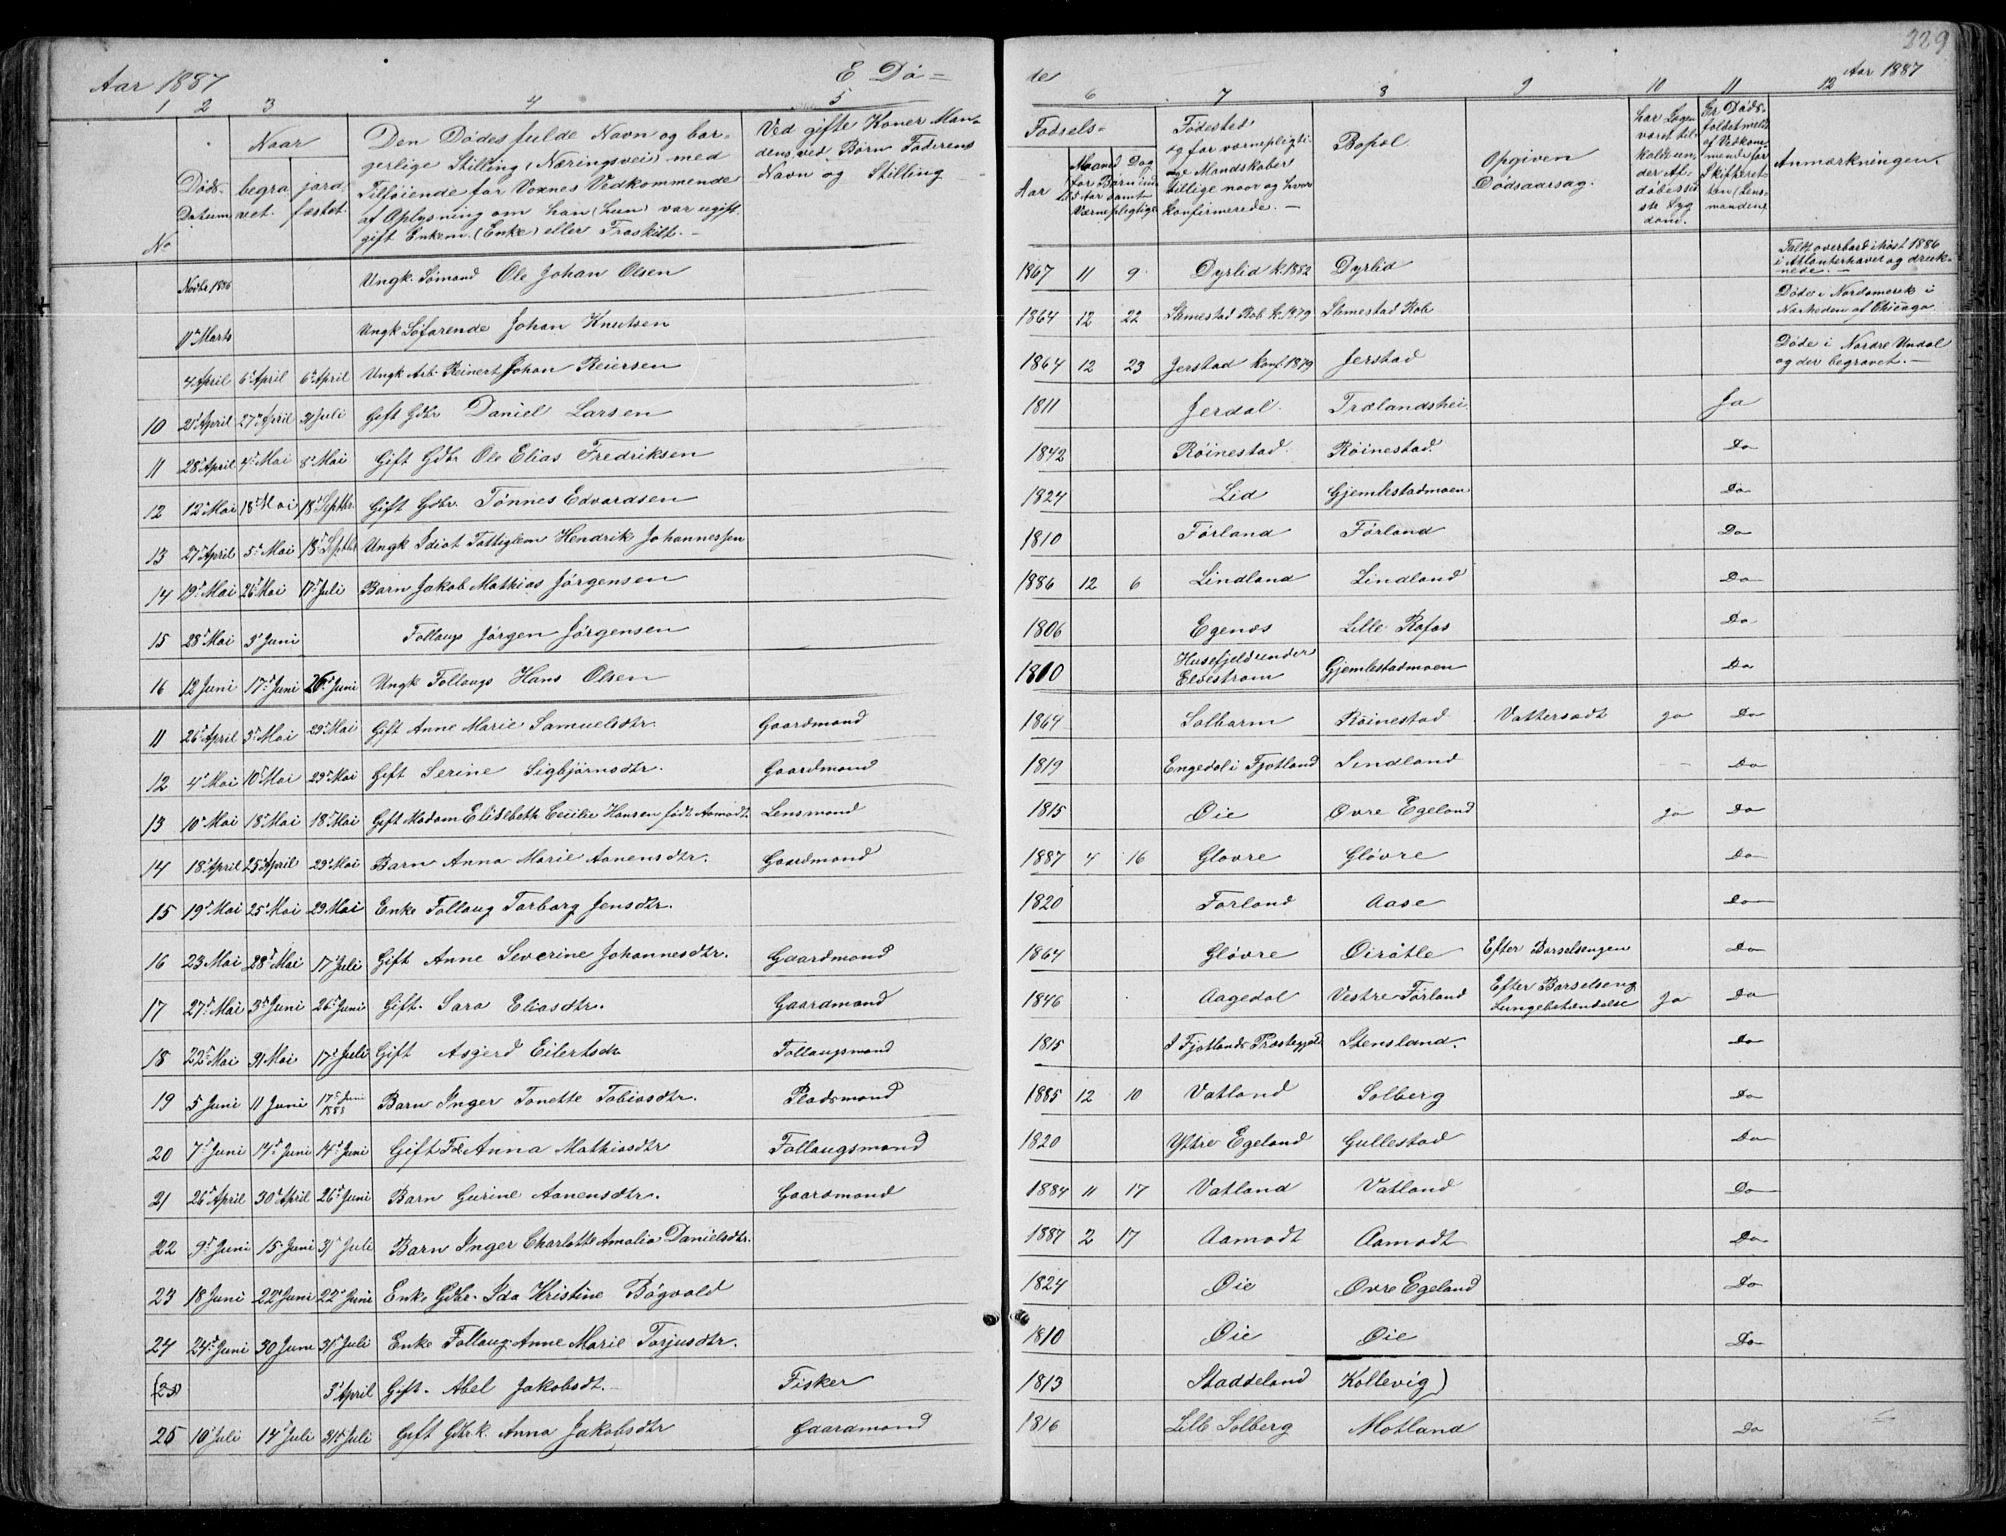 229
Aar 1887 E Dö= de Aar 1887
1 2 3 4 5 6 7 8 9 10 11 12
No
Döds-
Datum
Naar
begra-
vet.
jord-
fæstet.
Den Dödes fulde Navn og bor-
gerlige Stilling (Næringsvei) med
Tilföiende for Voxnes Vedkommende
af Oplysning om han (hun) var ugift.
gift Enkem. (Enke) eller Fraskilt.-
Ved gifte Koner Man-
dens, ved Börn Faderens
Navn og Stilling
Födsels-
Aar
Maaned Dag
for Börn ind
til 5 Aar samt
Værnepligtige
Födested
og for værnepligti-
ge Mandskaber
tillige naar og hvor
konfirmerede. -
Bopæl.
Opgiven
Dödsaarsag.
har Lægen
været til-
kaldt un-
der Af-
döbes sid-
ste Syg-
dom.
Er Döds-
faldet meldt
af Vedkom-
mende for
Skifteret-
ten (Lens-
manden)
Anmærkninger.
Novbr 1886 Ungk. Sömand Ole Johan Olsen 1867 11 9 Dyrlid k. 1882 Dyrlid Faldt overbord i höst 1886
i Atlanterhavet og druk-
nede. -
11te Marts Ungk Söfarende Johan Knutsen 1864 12 22 Slimestad Rob k. 1879 Slimestad Rob Döde i Nordamerik i
Nærheden af Chicago
4 April 6 April 6 April Ungk Arb. Reinert Johan Reiersen 1864 12 23 Jerstad konf. 1879 Jerstad Döde i Nordre Undal
og der begravet. -
10 21 April 27 April 31 Juli Gift Gdbr Daniel Larsen 1811 Jerdal. Trælandshei Ja
11 28 April 4 Mai 8 Mai Gift Gdbr Ole Elias Fredriksen 1842 Röinestad Röinestad. Do
12 12 Mai 18 Mai 18 Septbr. Gift Gdbr. Tönnes Edvardsen 1824 Lid Gjemlestadmoen Do
13 27 April 5 Mai 18 Septbr Ungk Idiot Fattiglem Hendrik Johannessen 1810 Förland Förland Do
14 19 Mai 26 Mai 17 Juli Barn Jakob Mathias Jörgensen 1886 12 6 Lindland Lindland Do
15 28 Mai 3 Juni Follaugs Jörgen Jörgensen 1806 Egenæs Lille Rafos Do
16 12 Juni 17 Juni 26 Juni Ungk Follaugs Hans Olsen 1810 Husefjeld under
Eldestrom Gjemlestadmoen Do
11 26 April 3 Mai 29 Mai Gift Anne Marie Samuelsdtr. Gaardmand 1864 Solbarm Röinestad Vattersødt ja Do
12 4 Mai 10 Mai 29 Mai Gift Serine Sigbjörnsdtr. Gaardmand 1819 Engedal i Fjotland Lindland Do
13 10 Mai 18 Mai 18 Mai Gift Madam Elisebeth Cecilie Hansen föd Aamodt Lensmand 1815 Öie Övre Egeland ja Do
14 18 April 25 April 29 Mai Barn Anna Marie Aanensdtr. Gaardmand 1887 4 16 Glövre Glövre Do
15 19 Mai 25 Mai 29 Mai Enke Follaug Torborg Jensdtr. 1820 Förland Aase Do
16 23 Mai 28 Mai 17 Juli Gift Anne Severine Johannesdtr. Gaardmand 1864 Glövre Öiråtle Efter Barselsengen Do
17 27 Mai 3 Juni 26 Juni Gift. Sara Eliasdtr. Gaardmand 1846 Aagedal Vestre Förland Efter Barselseng
Lungebetændelse ja Do
18 22 Mai 31 Mai 17 Juli Gift Asgerd Eilertsdtr Follaugsmand 1815 I Fjotlands Præstegjæld Stensland. Do
19 5 Juni 11 Juni 17 Juni
1883 Barn Inger Tonette Tobiasdtr. Pladsmand 1885 12 10 Vatland Solberg Do
20 7 Juni 14 Juni 14 Juni Gift Fl. Anna Mathiasdtr Follaugsmand 1820 Yttre Egeland Gullestad Do
21 26 April 30 April 26 Juni Barn Gurine Aanensdtr. Gaardmand 1884 11 17 Vatland Vatland Do
22 9 Juni 15 Juni 31 Juli Barn Inger Charlotte Amalia Danielsdtr. 1887 2 17 Aamodt Aamodt Do
23 18 Juni 22 Juni 22 Juni Enke Gdbr. Ida Kristine Bögvald 1824 Öie Övre Egeland Do
24 24 Juni 30 Juni 31 Juli Enke Follaug Anne Marie Torjusdtr. 1810 Öie Öie Do
(25) 3 April Gift. Abel Jakobsdt. Fisker 1813 Staddeland Kollevig)
25 10 Juli 14 Juli 31 Juli Gift Gdbrk. Anna Jakobsdtr Gaardmand 1816 Lille Solberg Motland Do